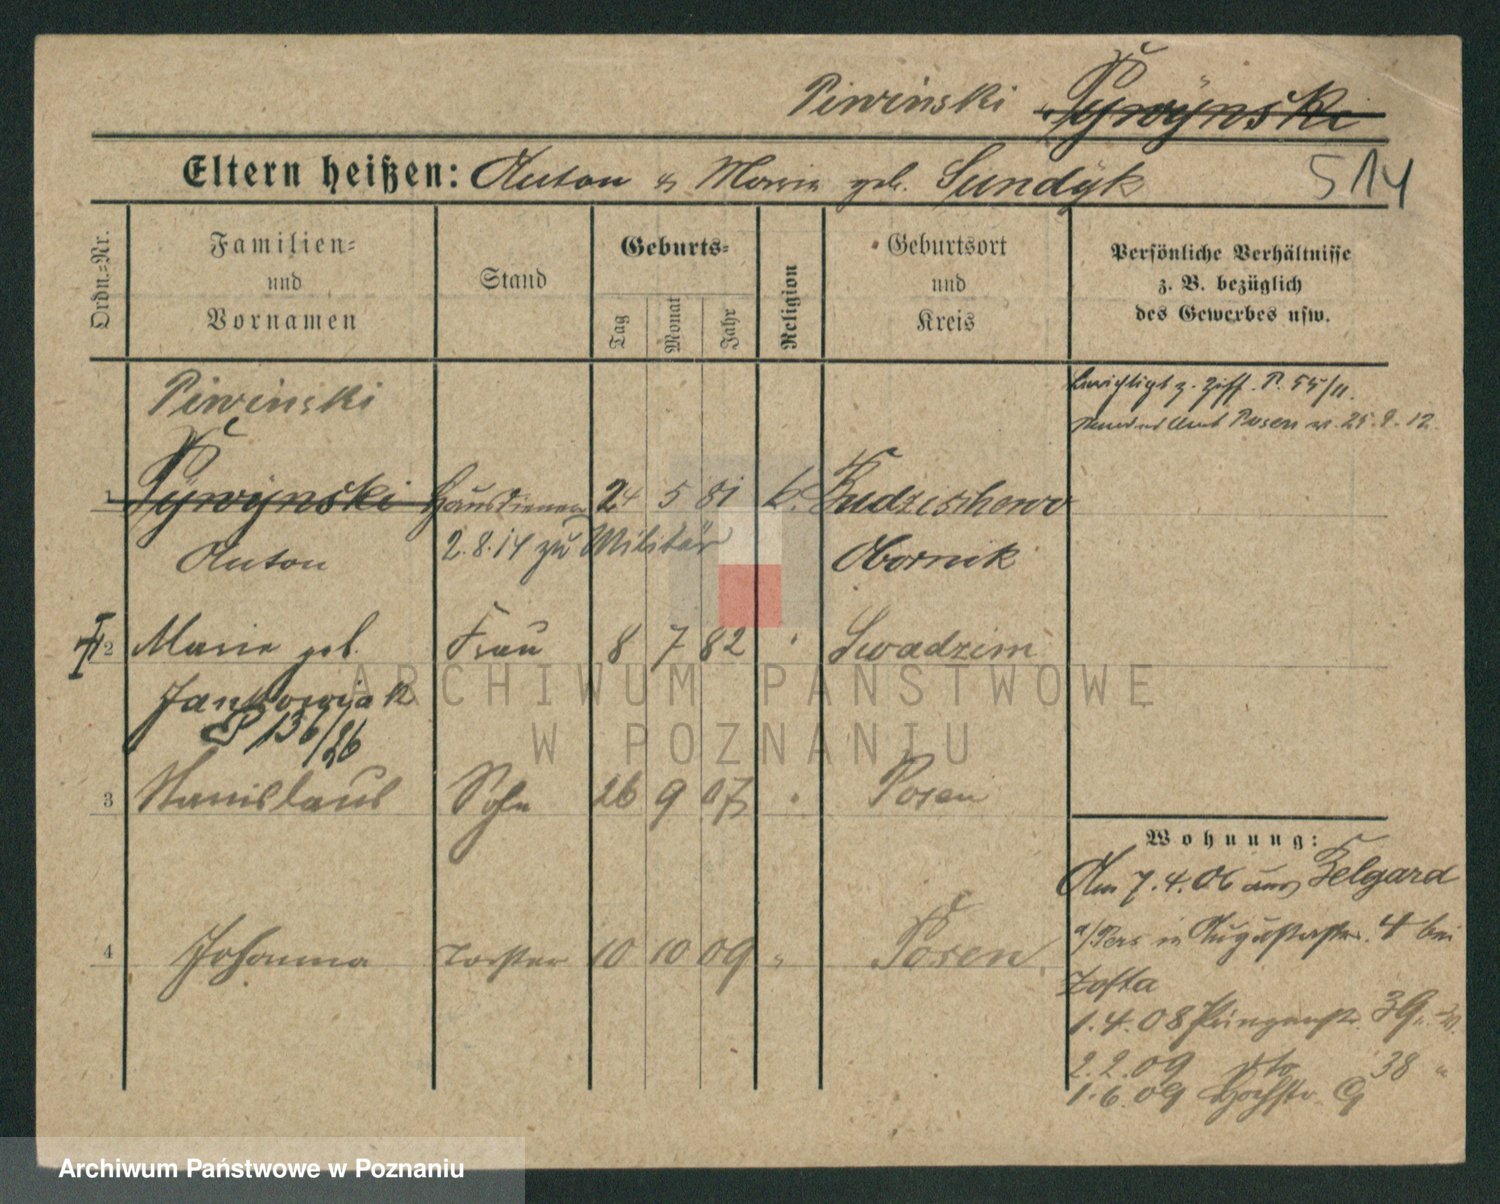 Piwinski Pywÿnski
Eltern heißen: Anton & Maria geb. Sundÿk
514
Ordn.=Nr.
Familien=
und
Vornamen
Stand
Geburts=
Tag
Monat
Jahr
Religion
Geburtsort
und
Kreis
Persönliche Verhältnisse
z. B. bezüglich
des Gewerbes usw.
Piwinski
berichtigt z. Ziff. P. 55/11.
Amt Posen v. 25.9.12.
1 Pÿwÿnski Hausdiener 24 5 81 k. Budzischewo
Anton 2.8.14 zu Militär Obornik
2 Marie geb. Frau 8 7 82 " Swadzim
Jankowjak
P 136/26
3 Stanislaus Sohn 26 9 07 " Posen
4 Johanna Tochter 10 10 09 " Posen
Wohnung:
Am 7.4.06 aus Belgard
a/Pers in Augustastr. 4 bei
1.4.08 39
2.2.09 dto 38 "
1.6.09 Hochstr. 9
ARCHIWUM PAŃSTWOWE
W POZNANIU
Archiwum Państwowe w Poznaniu